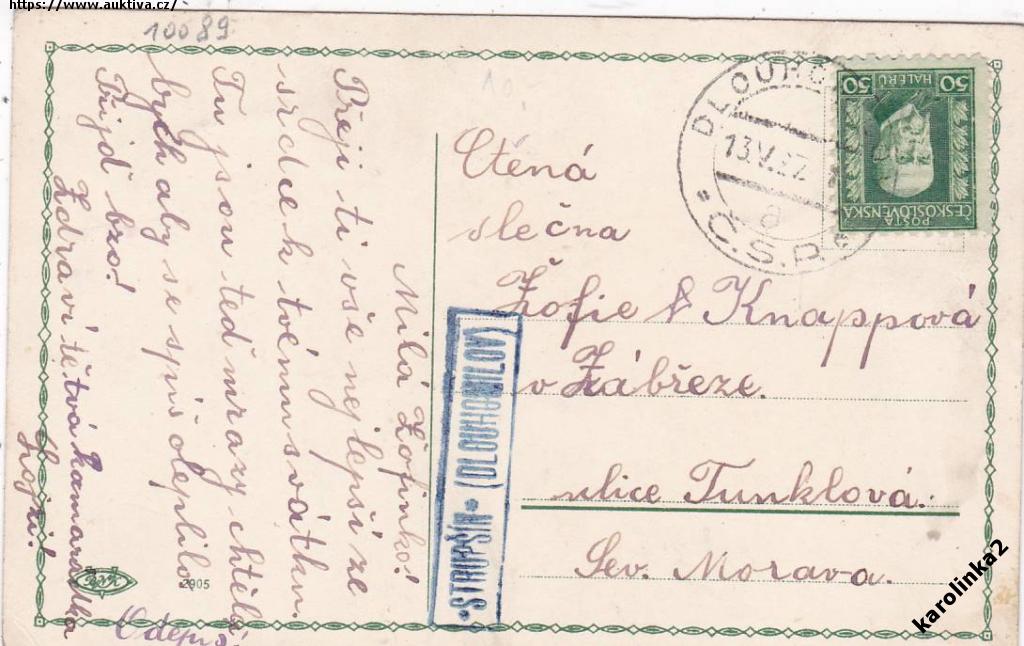 https://www.auktiva.cz/
10089
10,-
Milá Žofinko!
Přeji ti vše nejlepší ze
srdce k tvému svátku.
Tu jsou teď mrazy chtěla
bych aby se spíš oteplilo.
Přijď brzo!
Zdraví tě tvá kamarádka
2905
Ctěná
slečna
Žofie Knappová
v Zábřeze.
ulice Tunklová.
Sev. Morava.
*STROPŠÍN* (DLOUHOMILOV)
DLOUHO
13.V.37
a
*Č.S.R.*
50 HALÉŘŮ 50
POŠTA
ČESKOSLOVENSKA
karolinka2